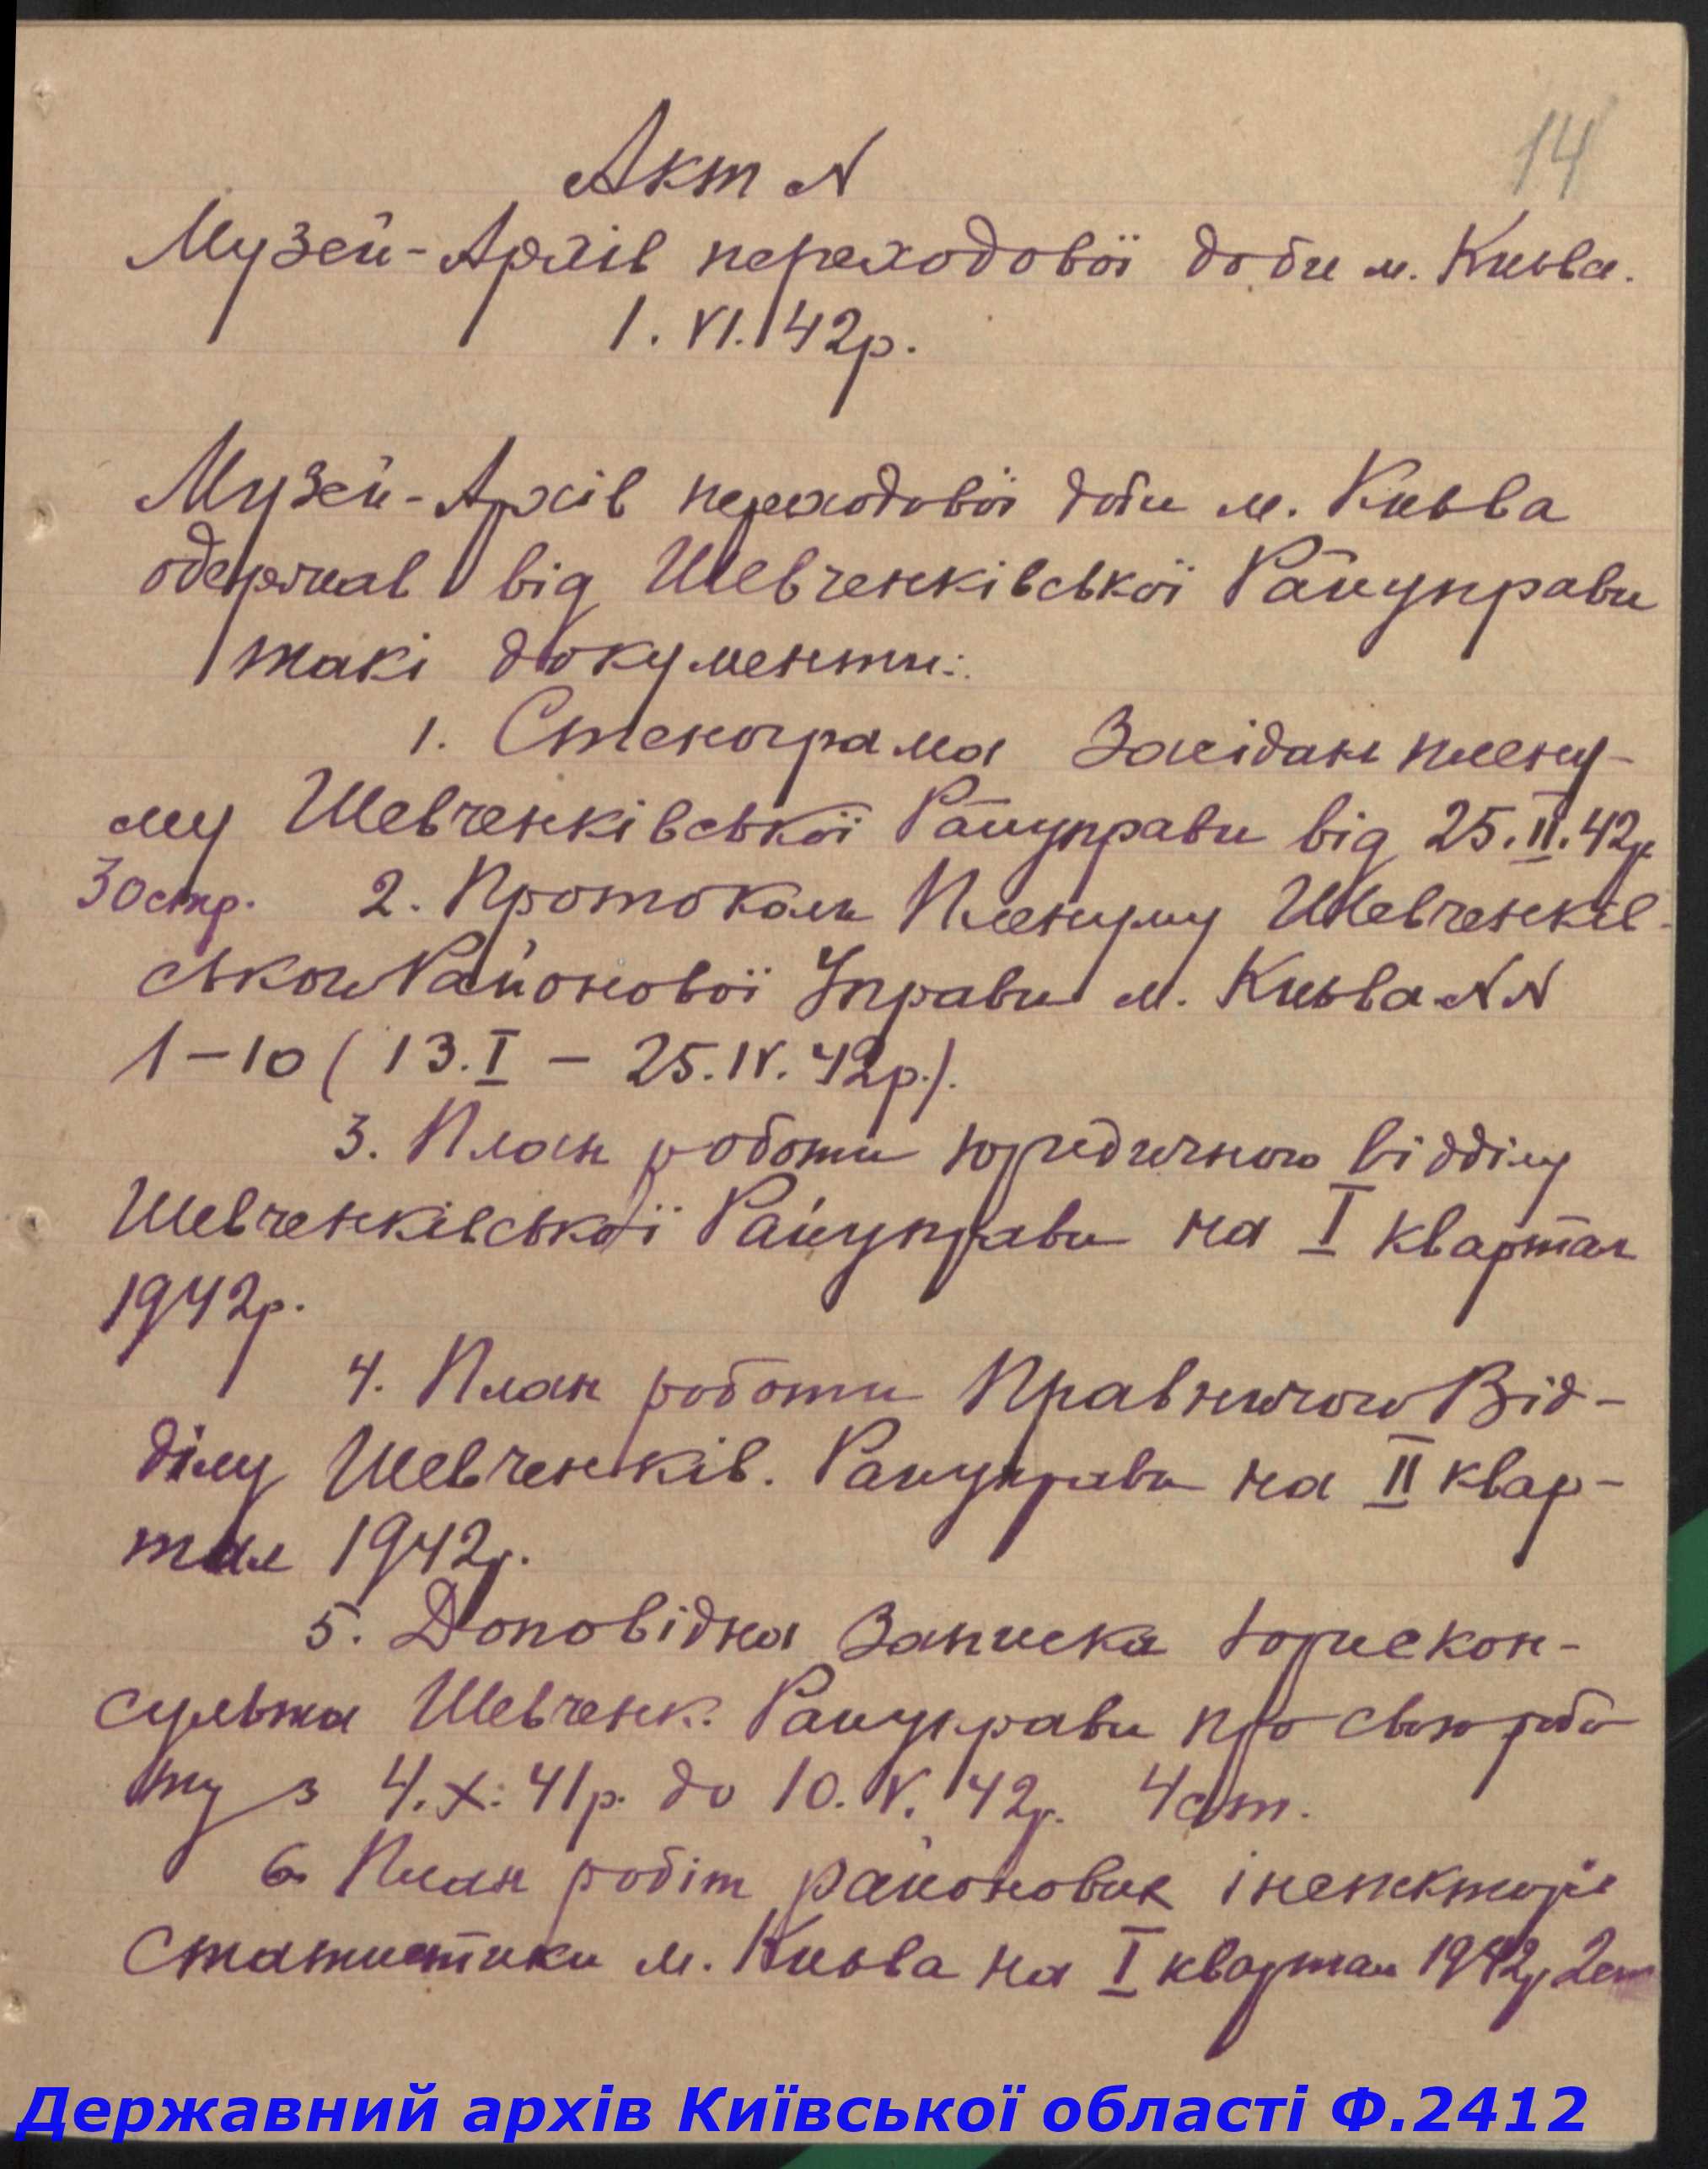 14
Акт N
Музей-Архів переходової доби м. Київа.
1. VI. 42р.
Музей-Архів переходової доби м. Київа
одержав від Шевченківської Райуправи
такі документи:
1. Стенограма Засідань плену-
му Шевченківської Райуправи від 25.II.42р
30 стр. 2. Протоколи Пленуму Шевченків-
ської Районової Управи м. Київа NN
1-10 (13.I – 25.IV. 42р.).
3. План роботи юридичного відділу
Шевченківської Райуправи на I квартал
1942р.
4. План роботи Правничого Від-
ділу Шевченків. Райуправи на II квар-
тал 1942р.
5. Доповідна Записка Юрискон-
сульта Шевченк. Райуправи про свою робо
ту з 4.X.41р. до 10.V.42р. 4 ст.
6. План робіт районових інспекторів
статистики м. Київа на I квартал 1942р 2 ст
Державний архів Київської області Ф.2412